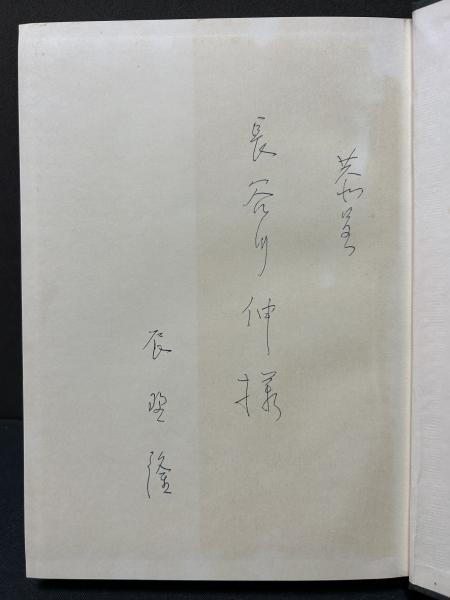 恭呈
長谷川伸様
辰野隆